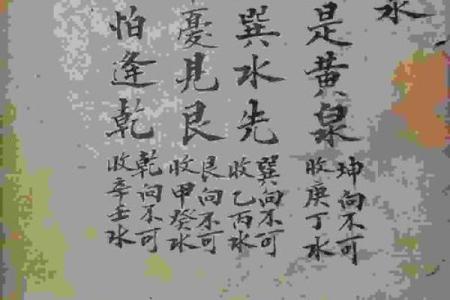 水
是黄泉
坤向不可
收庚丁水
巽水先
巽向不可
收乙丙水
憂見艮
艮向不可
收甲癸水
怕逢乾
乾向不可
收辛壬水